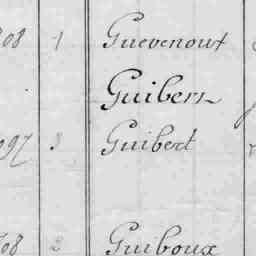 308 1 Guevenout
Guibers
097 3 Guibert
308 2 Guiboux